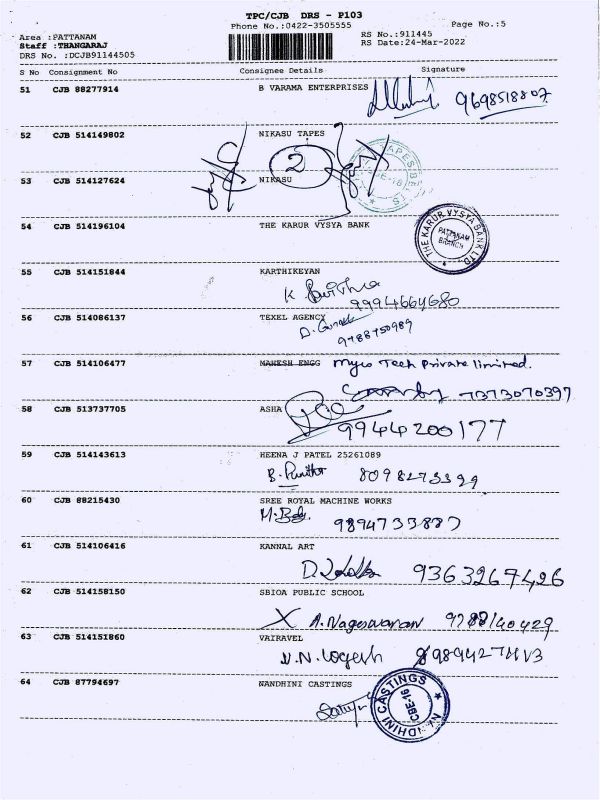 TPC/CJB DRS - P103
Phone No.:0422-3505555
Page No.:5
Area :PATTANAM
RS No.:911445
Staff :THANGARAJ
RS Date:24-Mar-2022
DRS No. :DCJB91144505
S No Consignment No Consignee Details Signature
51 CJB 88277914 B VARAMA ENTERPRISES
9698518807
52 CJB 514149802 NIKASU TAPES
2
53 CJB 514127624 NIKASU
54 CJB 514196104 THE KARUR VYSYA BANK
THE KARUR VYSYA BANK LTD.
PATTANAM
BRANCH
55 CJB 514151844 KARTHIKEYAN
9994664680
56 CJB 514086137 TEXEL AGENCY
9788750989
57 CJB 514106477 MAHESH ENGG Myco Tech Private limited.
7373070397
58 CJB 513737705 ASHA
9944200177
59 CJB 514143613 HEENA J PATEL 25261089
8098273329
60 CJB 88215430 SREE ROYAL MACHINE WORKS
9894733887
61 CJB 514106416 KANNAL ART
9363267426
62 CJB 514158150 SBIOA PUBLIC SCHOOL
X A.Nageswaran 9788140429
63 CJB 514151860 VAIRAVEL
V.N.Logesh
64 CJB 87794697 NANDHINI CASTINGS
NANDHINI CASTINGS
CBE-16